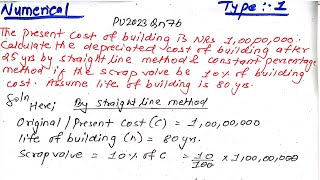 Numerical Type :- 1
PU2023 Qn7b
The present cost of building is NRs 1,00,00,000.
Calculate the depreciated cost of building after
25 yrs by straight line method & constant percentage
method if the scrap value be 10% of building
cost. Assume life of building is 80 yrs.
Soln
Here; By straight line method
Original / Present cost (C) = 1,00,00,000
life of building (n) = 80 yrs.
Scrap value = 10% of C = 10/100 × 1,00,00,000